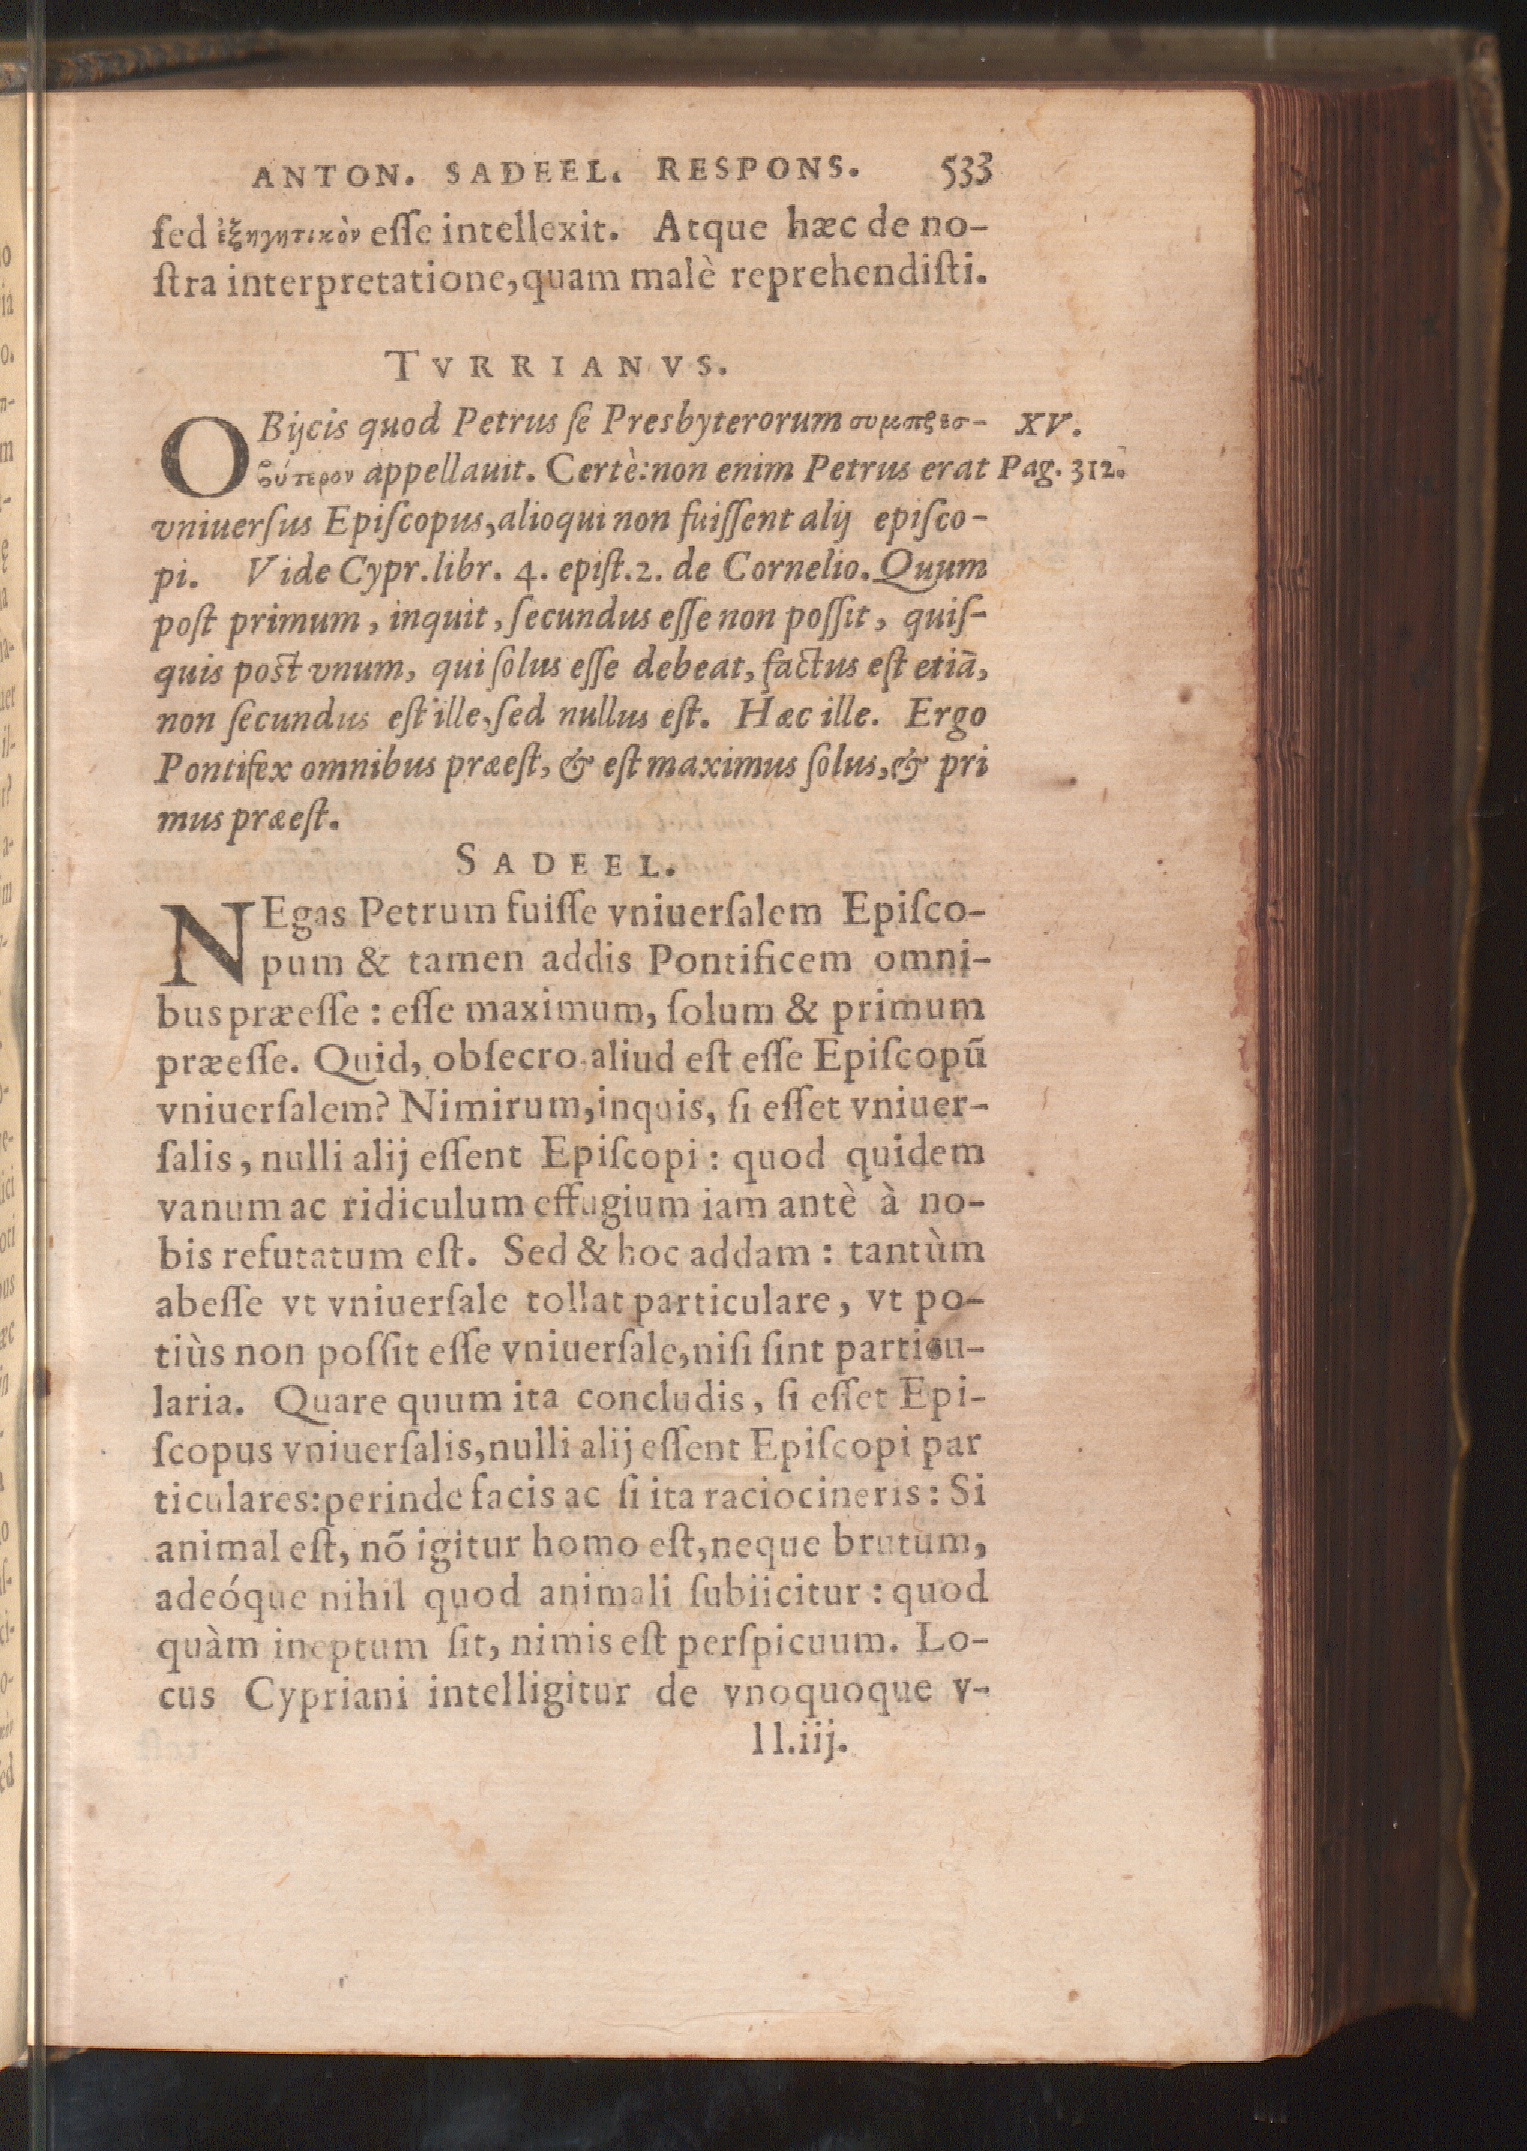 ANTON. SADEEL. RESPONS. 533
ſed ἐξηγητικὸν eſſe intellexit. Atque hæc de no-
ſtra interpretatione, quam malè reprehendiſti.
TVRRIANVS.
OBijcis quod Petrus ſe Presbyterorum συμπρεσ- XV.
βύτερον appellauit. Certè: non enim Petrus erat Pag. 312.
vniuerſus Epiſcopus, alioqui non fuiſſent alij epiſco-
pi. Vide Cypr. libr. 4. epiſt. 2. de Cornelio. Quum
poſt primum, inquit, ſecundus eſſe non poſſit, quiſ-
quis poſt vnum, qui ſolus eſſe debeat, factus eſt etiā,
non ſecundus eſt ille, ſed nullus eſt. Hæc ille. Ergo
Pontifex omnibus præeſt, & eſt maximus ſolus, & pri
mus præeſt.
SADEEL.
NEgas Petrum fuiſſe vniuerſalem Epiſco-
pum & tamen addis Pontificem omni-
bus præeſſe: eſſe maximum, ſolum & primum
præeſſe. Quid, obſecro aliud eſt eſſe Epiſcopū
vniuerſalem? Nimirum, inquis, ſi eſſet vniuer-
ſalis, nulli alij eſſent Epiſcopi: quod quidem
vanum ac ridiculum effugium iam antè à no-
bis refutatum eſt. Sed & hoc addam: tantùm
abeſſe vt vniuerſale tollat particulare, vt po-
tiùs non poſſit eſſe vniuerſale, niſi ſint particu-
laria. Quare quum ita concludis, ſi eſſet Epi-
ſcopus vniuerſalis, nulli alij eſſent Epiſcopi par
ticulares: perinde facis ac ſi ita raciocineris: Si
animal eſt, nō igitur homo eſt, neque brutum,
adeóque nihil quod animali ſubiicitur: quod
quàm ineptum ſit, nimis eſt perſpicuum. Lo-
cus Cypriani intelligitur de vnoquoque v-
ll.iij.